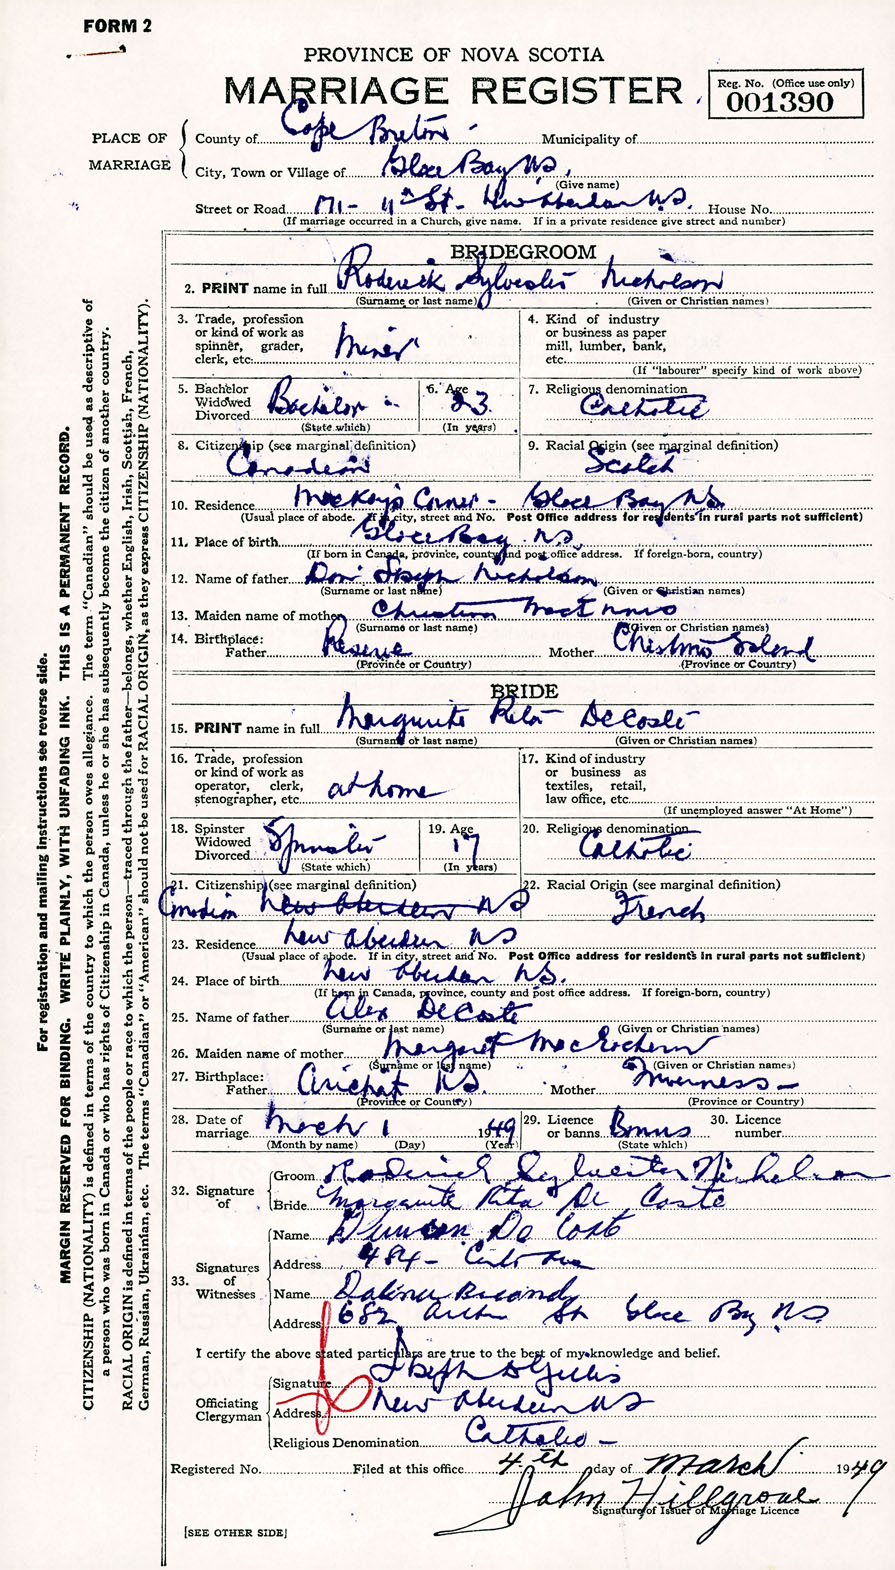 FORM 2
PROVINCE OF NOVA SCOTIA
MARRIAGE REGISTER
Reg. No. (Office use only)
001390
PLACE OF MARRIAGE
County of Cape Breton Municipality of
City, Town or Village of Glace Bay N.S.
(Give name)
Street or Road 171- 11th St- New Aberdeen N.S. House No.
(If marriage occurred in a Church, give name. If in a private residence give street and number)
BRIDEGROOM
2. PRINT name in full Roderick Sylvester Nicholson
(Surname or last name) (Given or Christian names)
3. Trade, profession or kind of work as spinner, grader, clerk, etc. Miner
4. Kind of industry or business as paper mill, lumber, bank, etc.
(If "labourer" specify kind of work above)
5. Bachelor Widowed Divorced Bachelor
(State which)
6. Age 23
(In years)
7. Religious denomination Catholic
8. Citizenship (see marginal definition)
Canadian
9. Racial Origin (see marginal definition)
Scotch
10. Residence MacKay's Corner - Glace Bay N.S.
(Usual place of abode. If in city, street and No. Post Office address for residents in rural parts not sufficient)
11. Place of birth Glace Bay N.S.
(If born in Canada, province, county and post office address. If foreign-born, country)
12. Name of father Dan Joseph Nicholson
(Surname or last name) (Given or Christian names)
13. Maiden name of mother Christina
(Surname or last name) (Given or Christian names)
14. Birthplace:
Father Reserve Mother Christmas Island
(Province or Country) (Province or Country)
BRIDE
15. PRINT name in full Marguerite Rita DeCoste
(Surname or last name) (Given or Christian names)
16. Trade, profession or kind of work as operator, clerk, stenographer, etc. at home
17. Kind of industry or business as textiles, retail, law office, etc.
(If unemployed answer "At Home")
18. Spinster Widowed Divorced Spinster
(State which)
19. Age 17
(In years)
20. Religious denomination Catholic
21. Citizenship (see marginal definition)
Canadian New Aberdeen NS
22. Racial Origin (see marginal definition)
French
23. Residence New Aberdeen NS
(Usual place of abode. If in city, street and No. Post Office address for residents in rural parts not sufficient)
24. Place of birth New Aberdeen N.S.
(If born in Canada, province, county and post office address. If foreign-born, country)
25. Name of father Alex DeCoste
(Surname or last name) (Given or Christian names)
26. Maiden name of mother Margaret MacEachern
(Surname or last name) (Given or Christian names)
27. Birthplace:
Father Arichat N.S. Mother Inverness -
(Province or Country) (Province or Country)
28. Date of marriage March 1 1949
(Month by name) (Day) (Year)
29. Licence or banns Banns
(State which)
30. Licence number
32. Signature of
Groom Roderick Sylvester Nicholson
Bride Marguerite Rita De Coste
33. Signatures of Witnesses
Name Duncan De Coste
Address 484-
Name
Address 682 St Glace Bay N.S.
I certify the above stated particulars are true to the best of my knowledge and belief.
Officiating Clergyman
Signature Joseph D Gillis
Address New Aberdeen NS
Religious Denomination Catholic -
Registered No. Filed at this office 4th day of March 1949
John Hillgrove
Signature of Issuer of Marriage Licence
[SEE OTHER SIDE]
For registration and mailing instructions see reverse side.
MARGIN RESERVED FOR BINDING. WRITE PLAINLY, WITH UNFADING INK. THIS IS A PERMANENT RECORD.
CITIZENSHIP (NATIONALITY) is defined in terms of the country to which the person owes allegiance. The term "Canadian" should be used as descriptive of
a person who was born in Canada or who has rights of Citizenship in Canada, unless he or she has subsequently become the citizen of another country.
RACIAL ORIGIN is defined in terms of the people or race to which the person—traced through the father—belongs, whether English, Irish, Scottish, French,
German, Russian, Ukrainian, etc. The terms "Canadian" or "American" should not be used for RACIAL ORIGIN, as they express CITIZENSHIP (NATIONALITY).